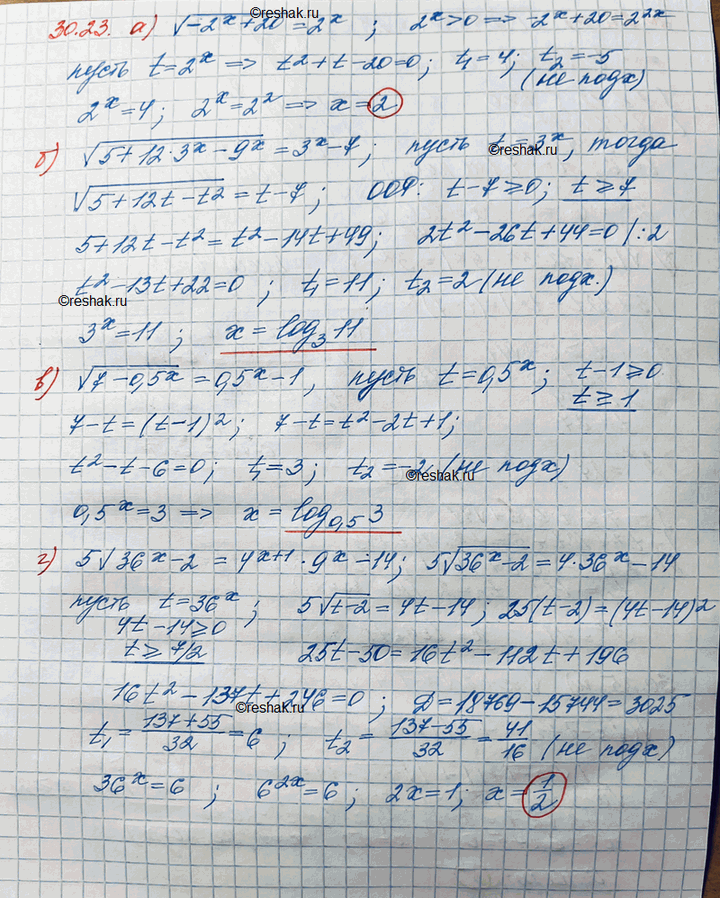 ©reshak.ru
30.23. а) √(-2^x+20) = 2^x ; 2^x>0 => -2^x+20=2^2x
пусть t=2^x => t²+t-20=0; t₁=4; t₂=-5
(не подх)
2^x=4; 2^x=2² => x=2
б) √(5+12·3^x-9^x) = 3^x-7; пусть t=3^x, тогда
©reshak.ru
√(5+12t-t²) = t-7; ООФ: t-7≥0; t≥7
5+12t-t²=t²-14t+49; 2t²-26t+44=0 |:2
t²-13t+22=0 ; t₁=11; t₂=2 (не подх.)
©reshak.ru
3^x=11 ; x=log₃11
в) √(7-0,5^x) = 0,5^x-1, пусть t=0,5^x; t-1≥0
t≥1
7-t=(t-1)²; 7-t=t²-2t+1;
t²-t-6=0; t₁=3; t₂=-2 (не подх)
©reshak.ru
0,5^x=3 => x=log₀,₅3
г) 5√(36^x-2) = 4^x+1·9^x-14; 5√(36^x-2)=4·36^x-14
пусть t=36^x; 5√(t-2)=4t-14; 25(t-2)=(4t-14)²
4t-14≥0
t≥7/2 25t-50=16t²-112t+196
16t²-137t+246=0 ; D=18769-15744=3025
©reshak.ru
t₁=(137+55)/32=6 ; t₂=(137-55)/32=41/16 (не подх)
36^x=6 ; 6^2x=6; 2x=1; x=1/2